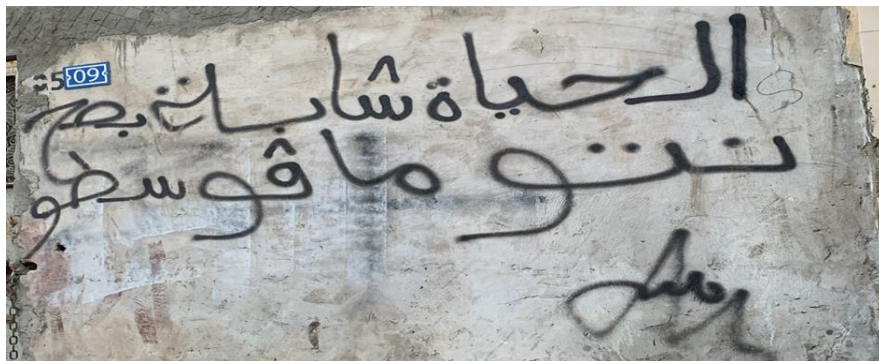 09
الحياة شابلة بصح
نتوما قوسطو